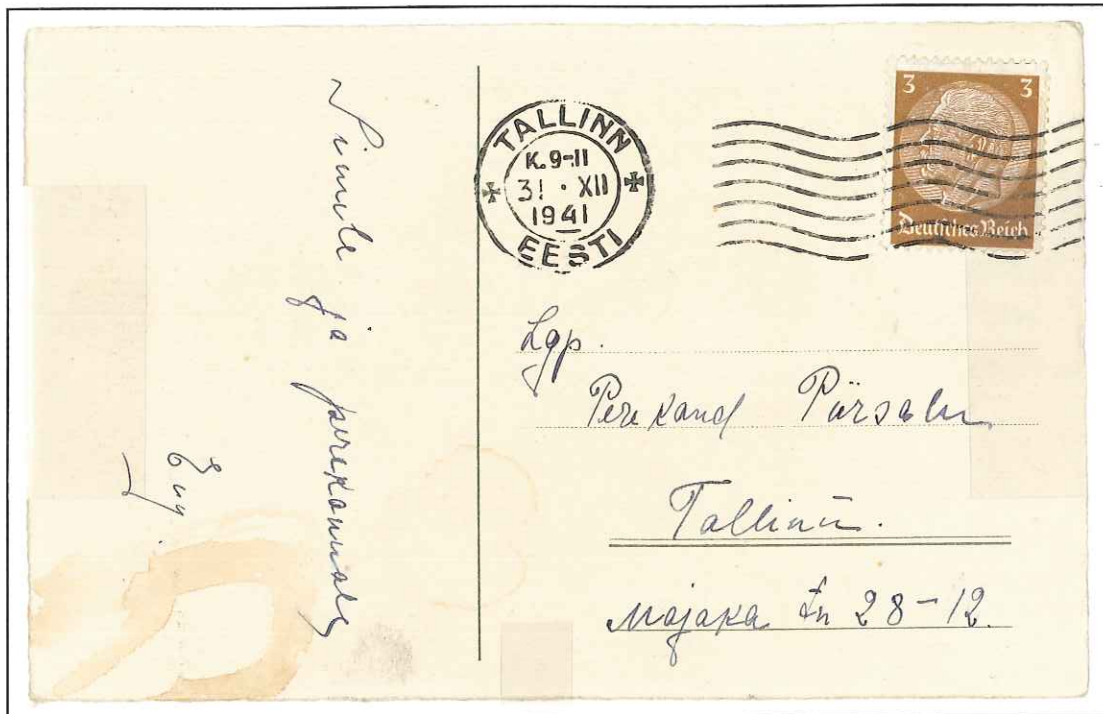 ja perekonnale
TALLINN
K. 9-11
31 · XII
1941
EESTI
3 3
Deutsches Reich
Lgp.
Perekond Piirsalu
Tallinn.
Majaka tn 28-12.